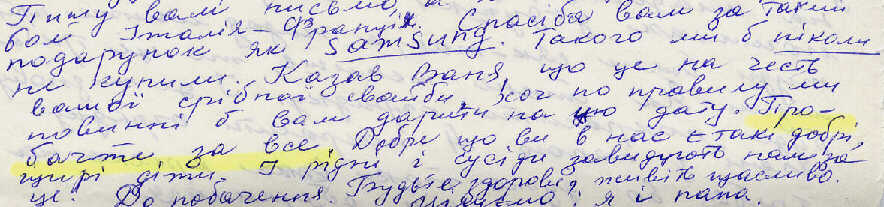 Пишу вам письмо, а
бол Італія – Франція. Спасіба вам за такий
подарунок як Samsung. Такого ми б ніколи
не купили. Казав Ваня, що це на честь
вашої срібної свайби, хоч по правилу ми
повинні б вам дарити на цю дату. Про-
бачте за все. Добре що ви в нас є такі добрі,
щирі діти. І рідні і сусіди завидують нам за
це. До побачення. Будьте здорові, живіть щасливо.
Цілуємо, я і папа.